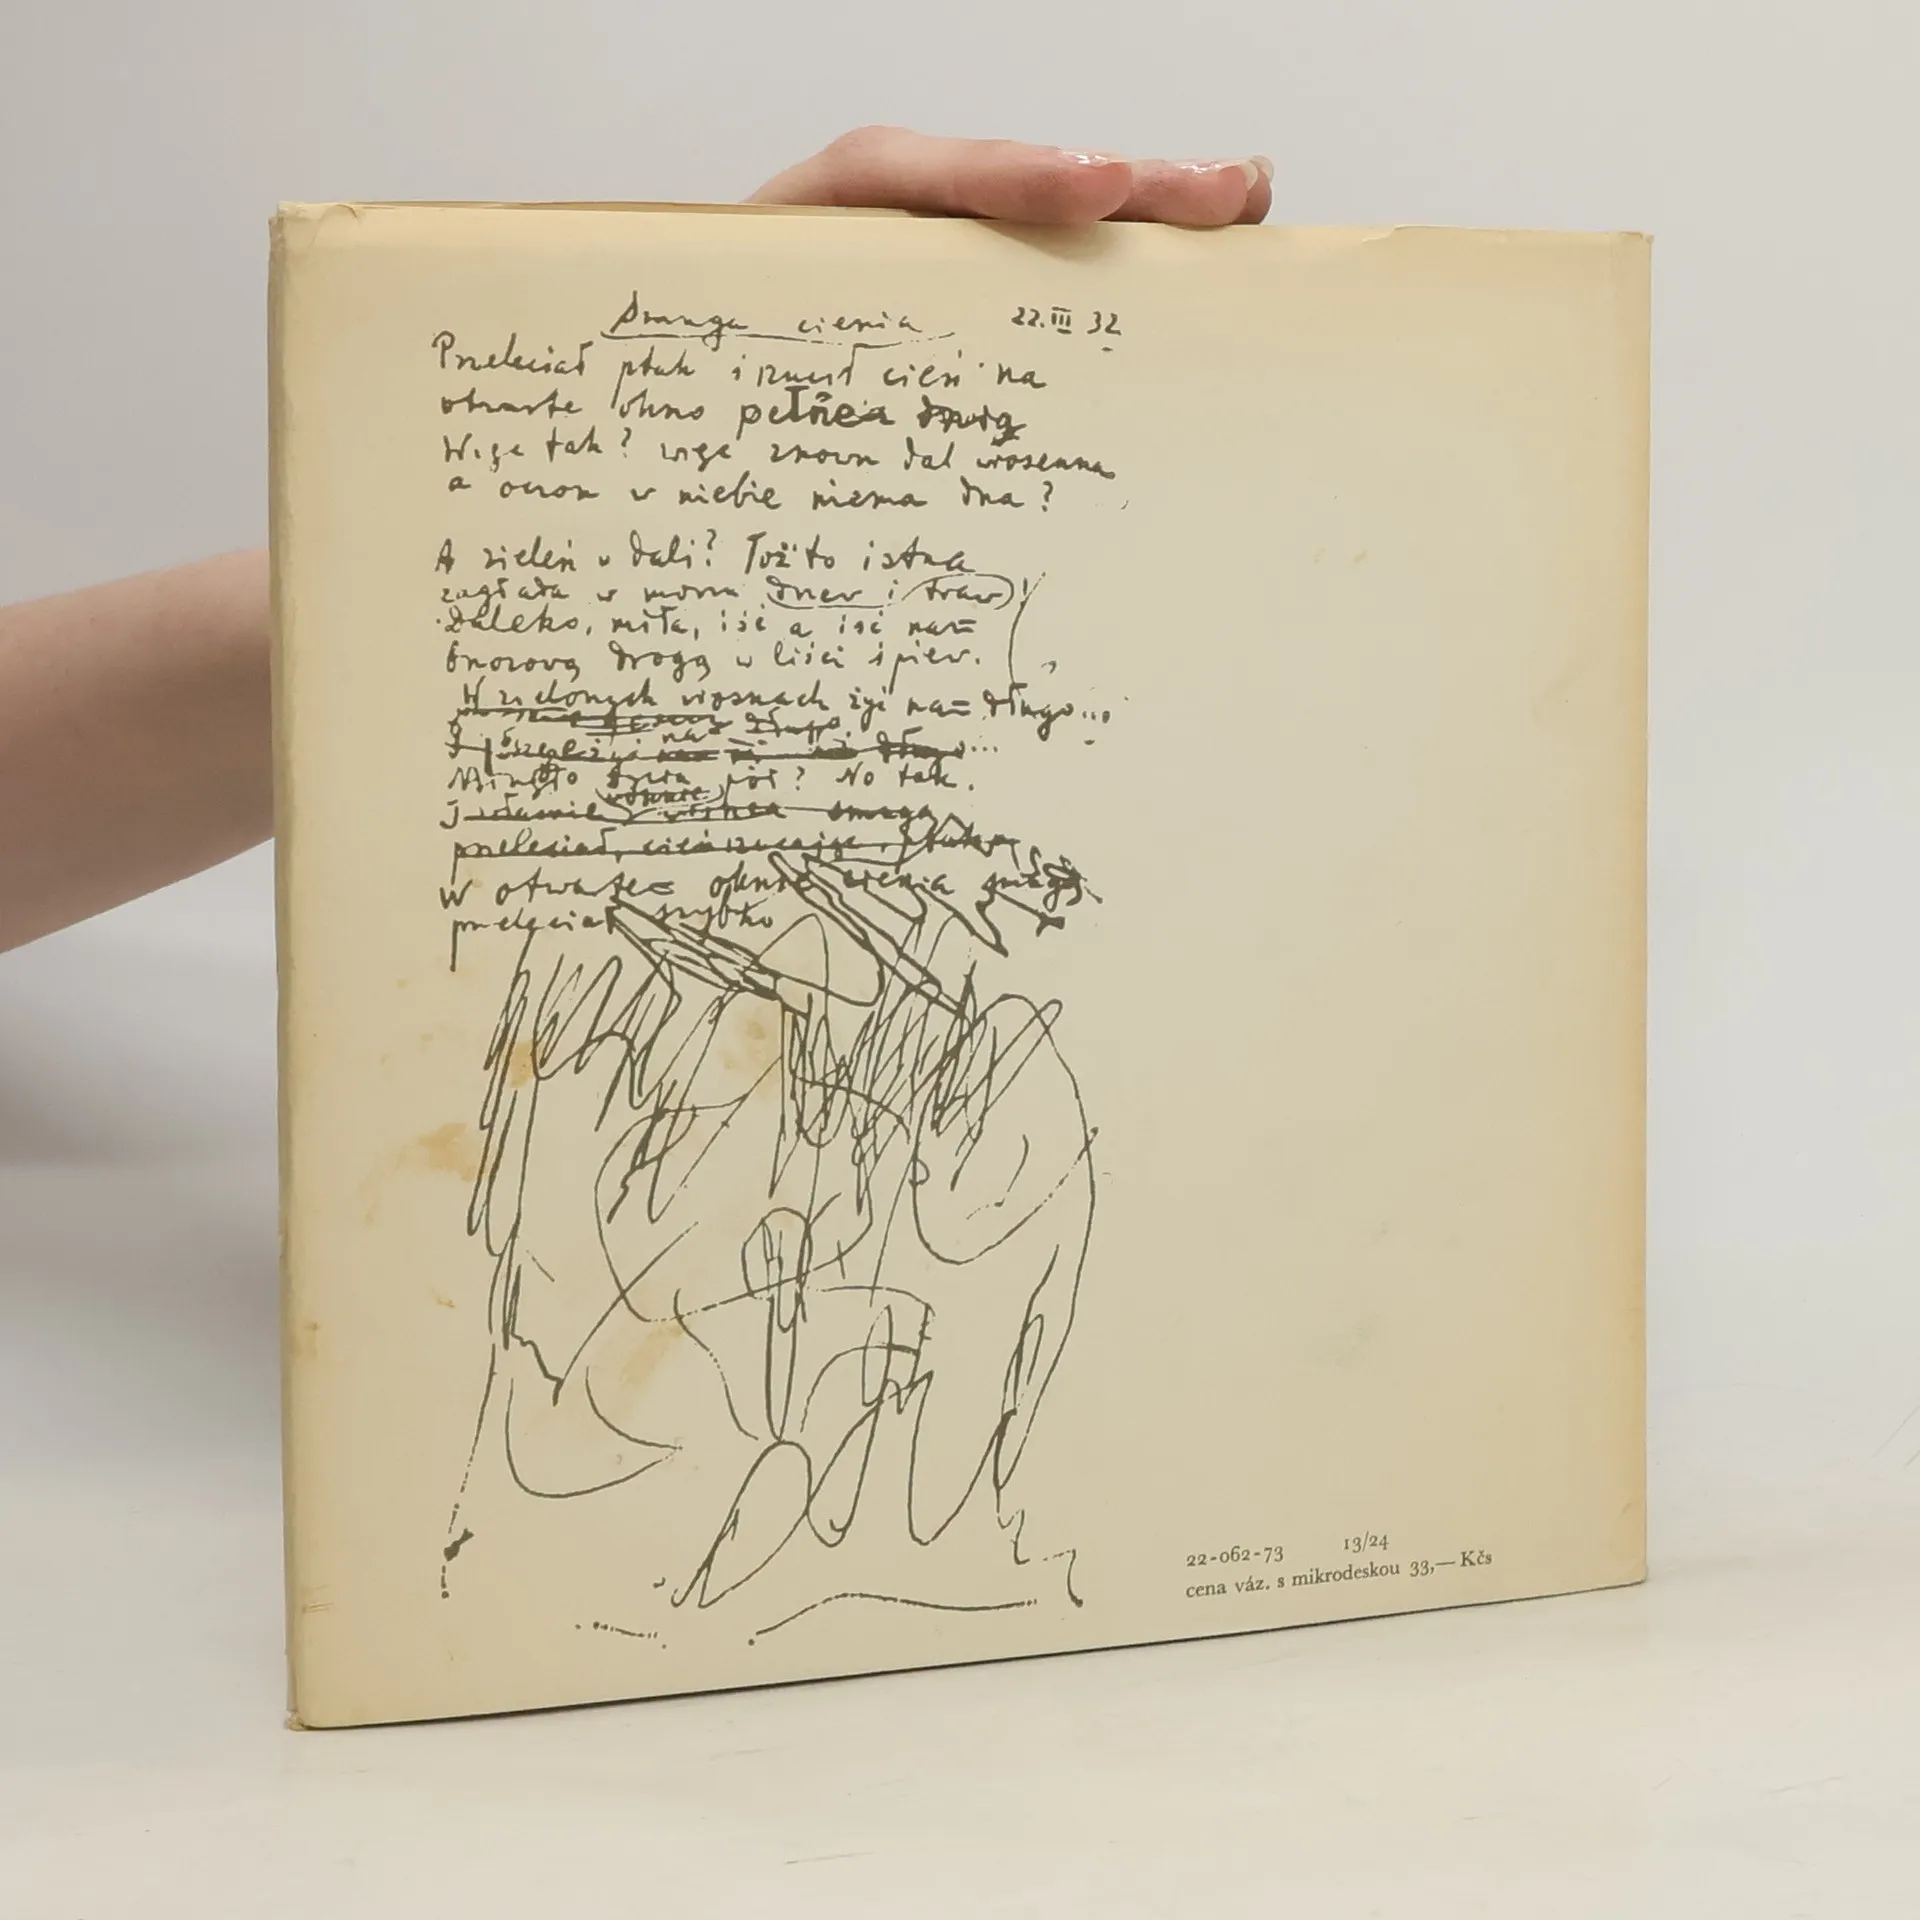 Smuga cienia 22.III 32
Przeleciał ptak i rzucił cień na
otwarte okno pełne
Więc tak? więc znowu dal wiosenna
a oczom w niebie niema dna?
A zieleń w dali? Toż to istna
zagłada w morzu drzew i traw
Daleko, miła, iść a iść nam
bnozovą drogą w liści śpiew.
W zielonych wiosnach żyć nam długo...
długo...
Minęło życia pół? No tak.
J właśnie smuga
przeleciał, cień rzucając, ptak
W otwarte oknie cienia smugą
przeleciał szybko
22-062-73 13/24
cena váz. s mikrodeskou 33,— Kčs